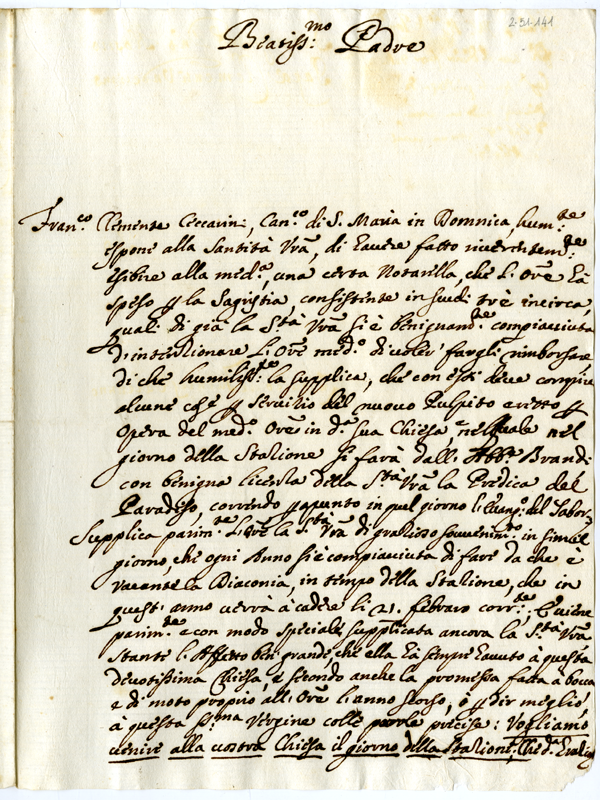 2-31-141
Beatiss:mo Padre
Fran.co Clemente Ceccarini, Can.co di S. Maria in Domnica, hum:te
espone alla Santità Vrã, di havere fatto riverentem:te
esibire alla med.a, una certa Notarella, che l'Orẽ hà
speso p la Sagristia, consistente in scudi trè incirca,
quali di già la S.tà Vrã si è benignam.te compiaciuta
d'intenzionare l'Orẽ med.o di voler fargli rimborsare
di che humiliss:te la supplica, che con essi deve compire
alcune cose p servitio del nuovo Pulpito eretto p
opera del med.o Orẽ in d.a sua Chiesa, nel quale nel
giorno della Stazione si farà dall' Abb.e Brandi
con benigna licenza della S.tà Vrã la Predica del
Paradiso, correndo appunto in quel giorno l'Evang.o del Tabor
Supplica parim.te l'Orẽ la S.tà Vrã di grazioso souvenim.to in simil
giorno, che ogni Anno si è compiaciuta di fare da che è
vacante la Diaconia, in tempo della Stazione, che in
quest' anno verrà à cadere li 21. febraro corr.te; E viene
parim.te e con modo speciale supplicata ancora la S.tà Vrã
stante l'Affetto ben grande, che ella hà sempre havuto à questa
devotissima Chiesa, e secondo anche la promessa fatta à bocca
e di moto proprio all' Orẽ l'anno scorso, ò p dir meglio,
à questa S.ma Vergine colle parole precise: Vogliamo
venire alla vostra Chiesa il giorno della Stazione, Che d.a